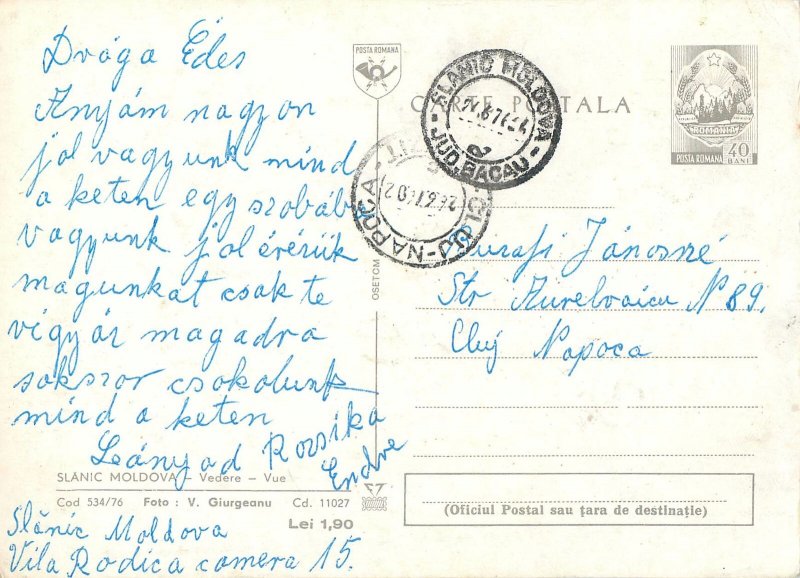 Drága Édes
Anyám nagyon
jol vagyunk mind
a keten egy szobába
vagyunk jol érézük
magunkat csak te
vigyáz magadra
sokszor csokolunk
mind a keten
Leányod Rozsika
Endre
SLĂNIC MOLDOVA – Vedere – Vue
Cod 534/76 Foto : V. Giurgeanu Cd. 11027
Lei 1,90
Slănic Moldova
Vila Rodica camera 15.
POSTA ROMANA
CARTE POSTALA
SLANIC MOLDOVA
JUD. BACAU
CLUJ-NAPOCA
ROMANIA
POSTA ROMANA 40 BANI
OSETCM
Jánosné
Str Aurelvaicu N 89.
Cluj Napoca
(Oficiul Postal sau țara de destinație)